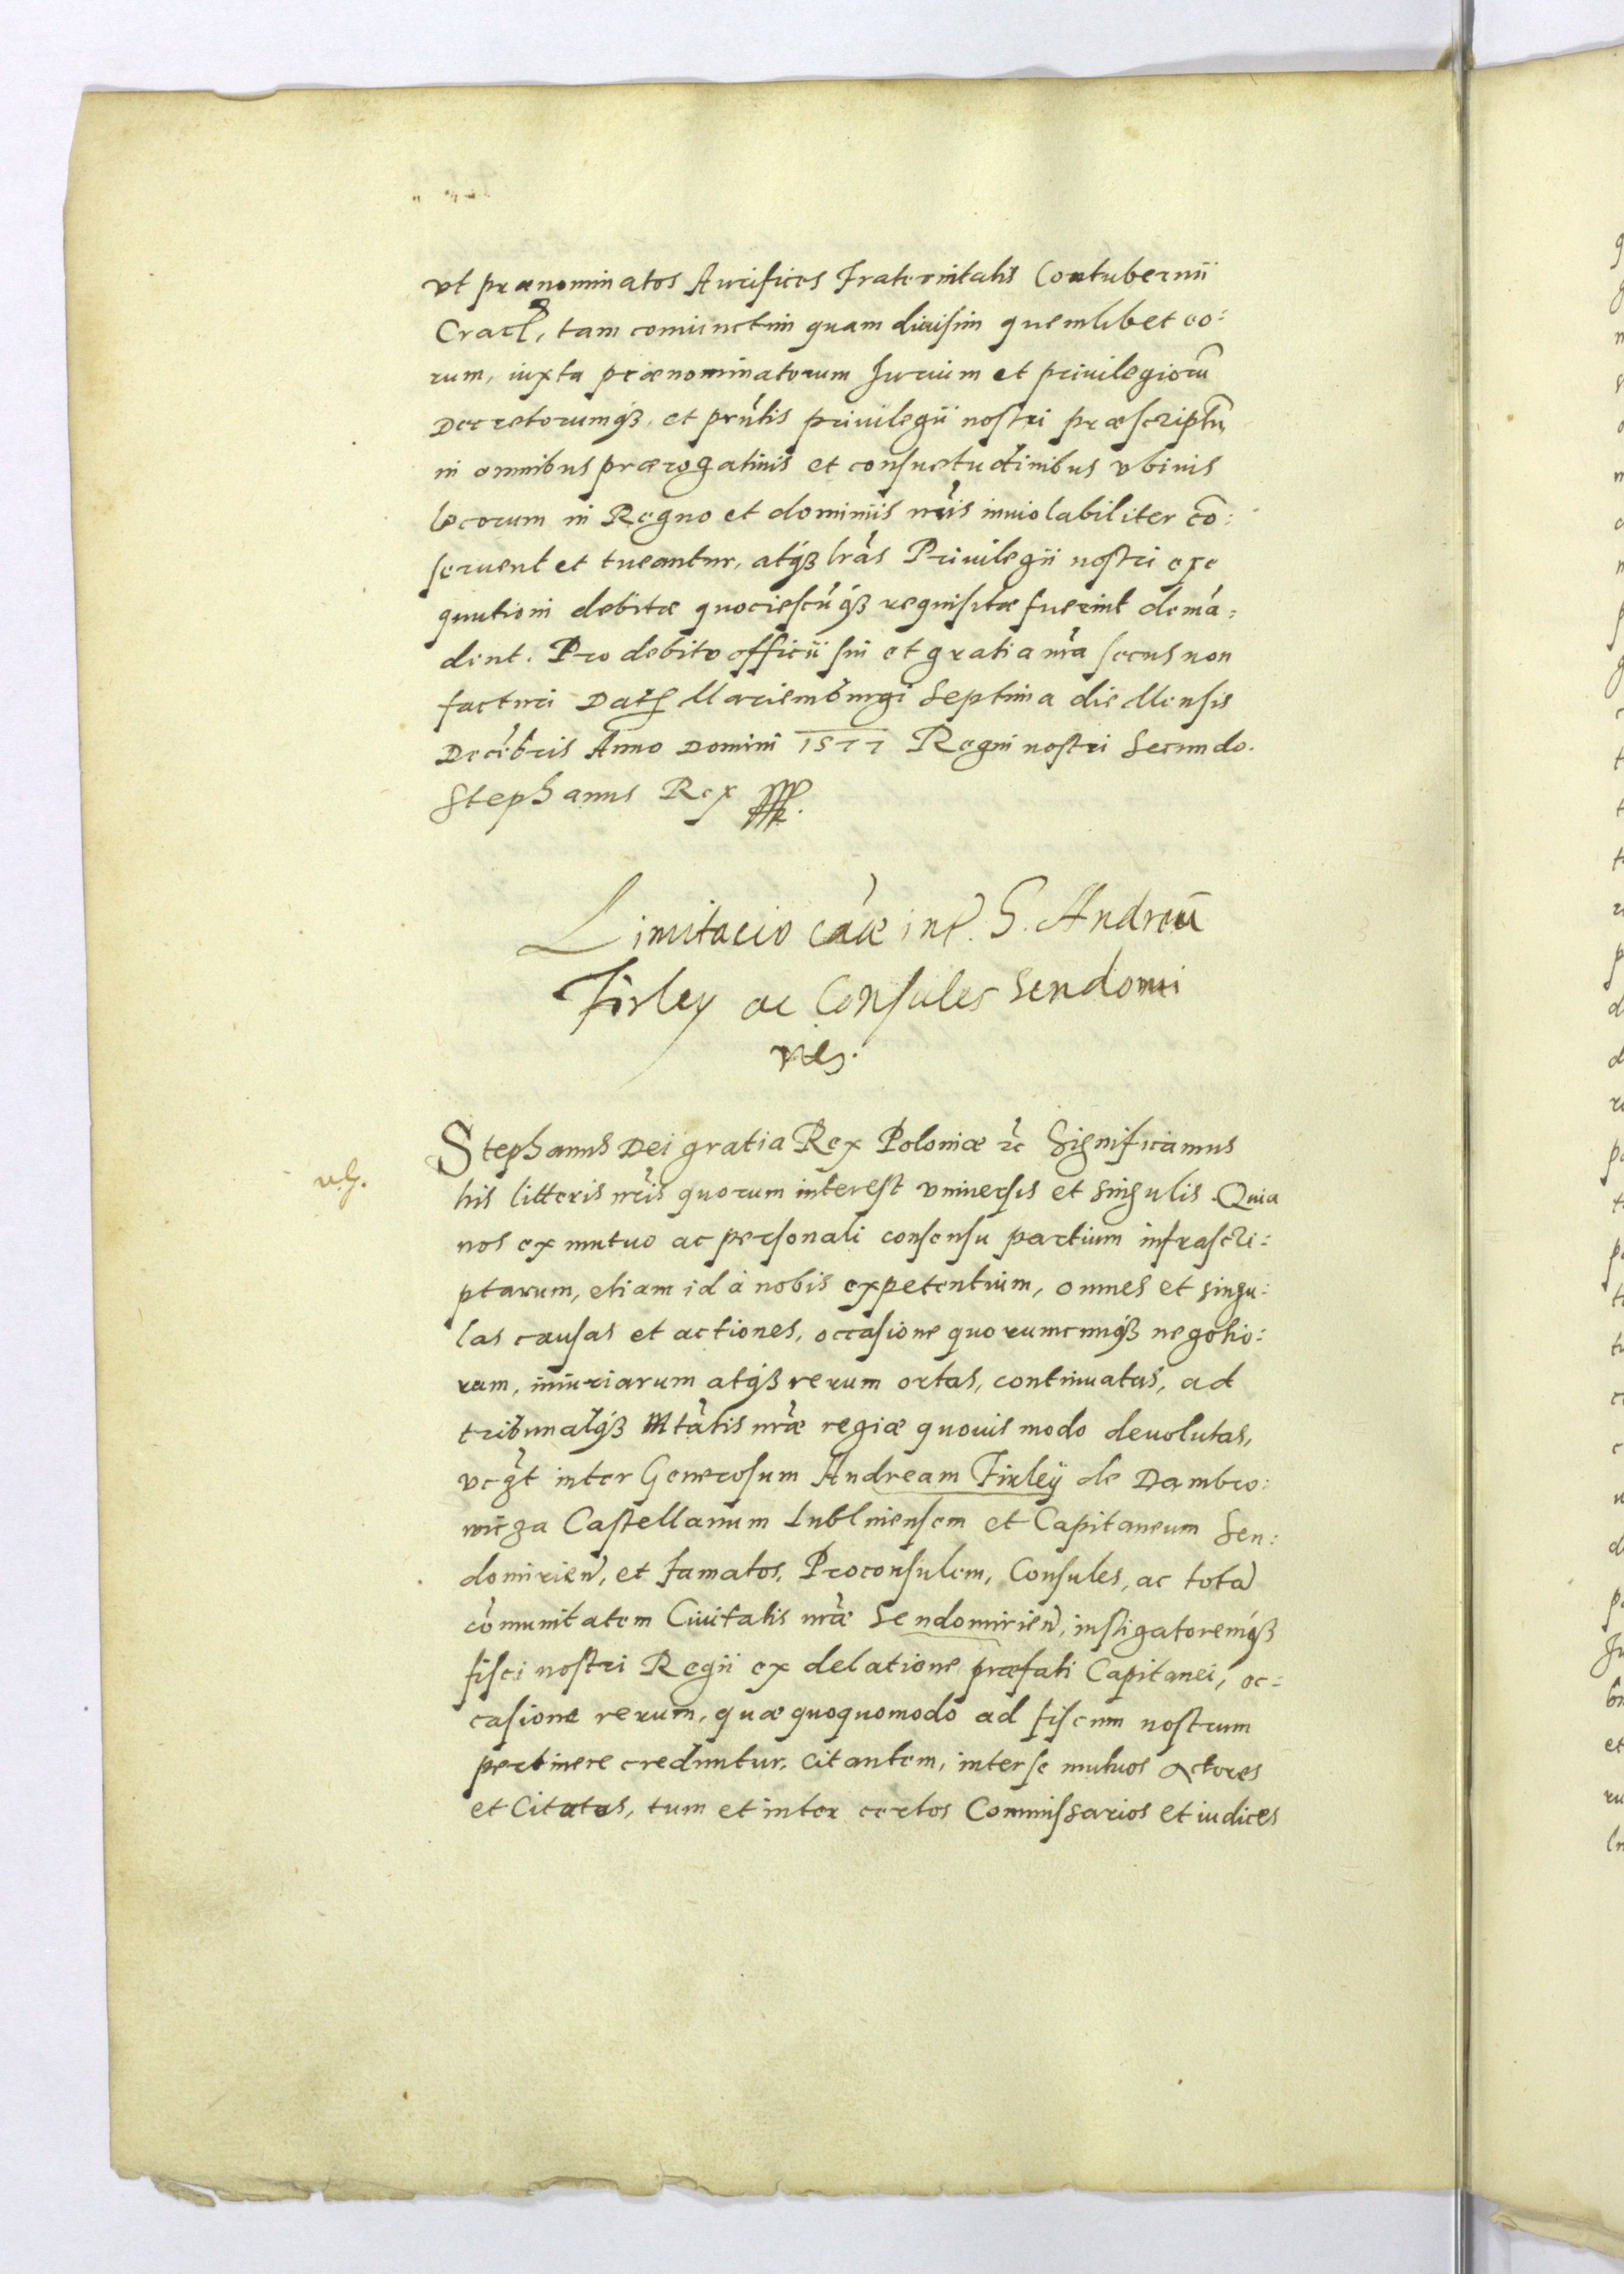 vt prænominatos Aurifices Fraternitatis Contubernii
Crac̃, tam coniunctim quam diuisim quemlibet eo:
rum, iuxta prænominatorum Jurium et priuilegiorũ
Decretorumq́ꝫ, et prñtis priuilegii nostri præscriptũ,
in omnibus prærogatiuis et consuetudinibus vbiuis
locorum in Regno et dominiis nr̃is inuiolabiliter cõ:
seruent et tueantur, atq́ꝫ lr̃as Priuilegii nostri exe
quutioni debitæ quociescũq́ꝫ requisitæ fuerint demã:
dent. Pro debito officii sui et gratia nr̃a secus non
facturi Dat̃ Mariemburgi Septima die Mensis
Decẽbris Anno Domini 1577 Regni nostri Secundo.
Stephanus Rex
Limitacio cãæ int̃. G. Andreã
Firley ac Consules Sendomi
rieñ.
Stephanus Dei gratia Rex Poloniæ ꝛc Significamus
his litteris nr̃is quorum interest vniuersis et singulis. Quia
nos ex mutuo ac personali consensu partium infrascri:
ptarum, etiam id à nobis expetentium, omnes et singu:
las causas et actiones, occasione quorumcunq́ꝫ negotio:
rum, iniuriarum atq́ꝫ rerum ortas, continuatas, ad
tribunalq́ꝫ Mtãtis nr̃æ regiæ quouis modo deuolutas,
vcq̃t inter Generosum Andream Firleÿ de Dambro:
wicza Castellanum Lubliniensem et Capitaneum Sen:
domirieñ, et famatos, Proconsulem, Consules, ac totã
cõmunitatem Ciuitatis nr̃æ Sendomirieñ, instigatoremq́ꝫ
fisci nostri Regii ex delatione præfati Capitanei, oc:
casione rerum, quæ quoquomodo ad fiscum nostrum
pertinere creduntur, citantem, inter se mutuos actores
et Citatos, tum et inter certos Commissarios et iudices